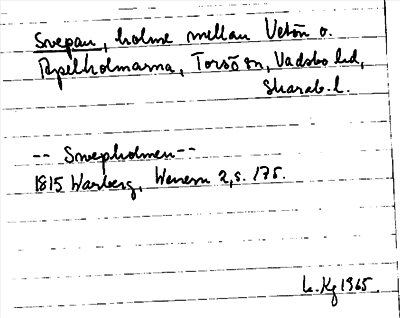 Snepan, holme mellan Vetön o.
Papelholmarna, Torsö sn, Vadsbo hd,
Skarab. l.
-- Snepholmen --
1815 Warberg, Wenern 2, s. 175.
L. Kg 1965.